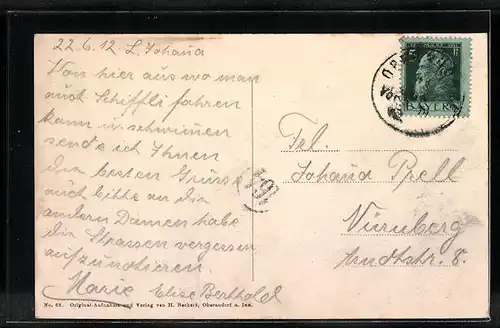 22.6.12 L. Johana
Von hier aus wo man
auch Schiffli fahren
kann u. schwimmen
sende ich Ihnen
die besten Grüsse
auch bitte an die
andern Damen habe
die Strassen vergessen
aufzunotieren.
Marie Elise Berthold
No. 66. Original-Aufnahme und Verlag von H. Beckert, Oberaudorf a. Inn.
5
BAYERN
Frl.
Johana Prell
Nürnberg
Arndtstr. 8.